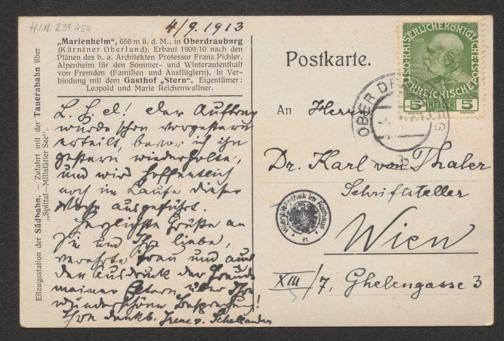 H.I.N. 239.454
4/9. 1913
„Marienheim", 650 m ü. d. M., in Oberdrauburg
(Kärntner Oberland). Erbaut 1909/10 nach den
Plänen des b. a. Architekten Professor Franz Pichler.
Alpenheim für den Sommer- und Winteraufenthalt
von Fremden (Familien und Ausflüglern). In Ver-
bindung mit dem Gasthof „Stern". Eigentümer:
Leopold und Marie Reichenwallner.
Eilzugsstation der Südbahn. — Zufahrt mit der Tauernbahn über
„Spittal-Millstätter See".
L. H. d! der Auftrag
wurde schon vorgestern
erteilt, bevor ich ihn
gestern wiederholte,
und wird hoffentlich
noch im Laufe dieser
Woche ausgeführt.
Herzlichste Grüße an
Sie und Ihre liebe,
verehrte Frau und auch
den Ausdruck der Freude
meiner Eltern über Ihre
wunderschöne Besprechung!
Ihre dankb. Irene v. Schellander
Postkarte.
KAISERLICHE KÖNIGLICHE
ÖSTERREICHISCHE POST
5 HELLER 5
OBERDRAUBURG
An Herrn
Dr. Karl von Thaler
Schriftsteller
Wien
XIII/7, Ghelengasse 3